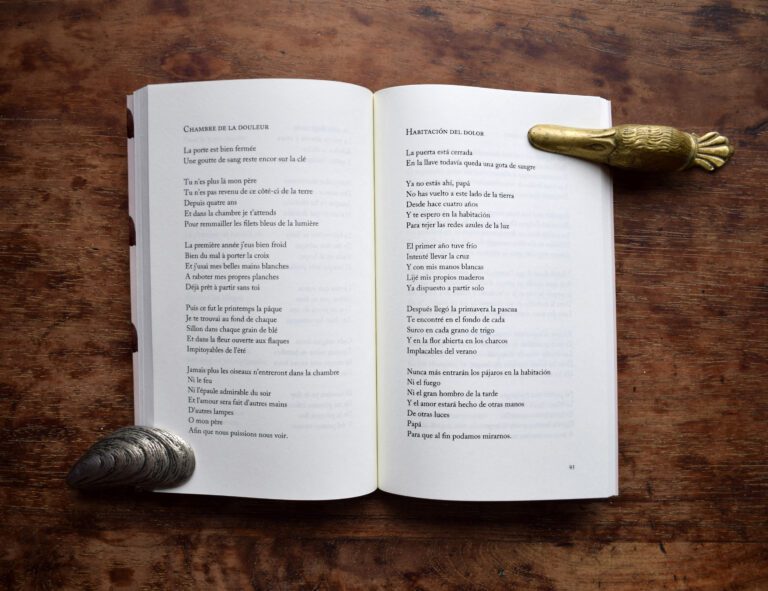 CHAMBRE DE LA DOULEUR
La porte est bien fermée
Une goutte de sang reste encor sur la clé
Tu n'es plus là mon père
Tu n'es pas revenu de ce côté-ci de la terre
Depuis quatre ans
Et dans la chambre je t'attends
Pour remmailler les filets bleus de la lumière
La première année j'eus bien froid
Bien du mal à porter la croix
Et j'usai mes belles mains blanches
A raboter mes propres planches
Déjà prêt à partir sans toi
Puis ce fut le printemps la pâque
Je te trouvai au fond de chaque
Sillon dans chaque grain de blé
Et dans la fleur ouverte aux flaques
Impitoyables de l'été
Jamais plus les oiseaux n'entreront dans la chambre
Ni le feu
Ni l'épaule admirable du soir
Et l'amour sera fait d'autres mains
D'autres lampes
O mon père
Afin que nous puissions nous voir.
HABITACIÓN DEL DOLOR
La puerta está cerrada
En la llave todavía queda una gota de sangre
Ya no estás ahí, papá
No has vuelto a este lado de la tierra
Desde hace cuatro años
Y te espero en la habitación
Para tejer las redes azules de la luz
El primer año tuve frío
Intenté llevar la cruz
Y con mis manos blancas
Lijé mis propios maderos
Ya dispuesto a partir solo
Después llegó la primavera la pascua
Te encontré en el fondo de cada
Surco en cada grano de trigo
Y en la flor abierta en los charcos
Implacables del verano
Nunca más entrarán los pájaros en la habitación
Ni el fuego
Ni el gran hombro de la tarde
Y el amor estará hecho de otras manos
De otras luces
Papá
Para que al fin podamos mirarnos.